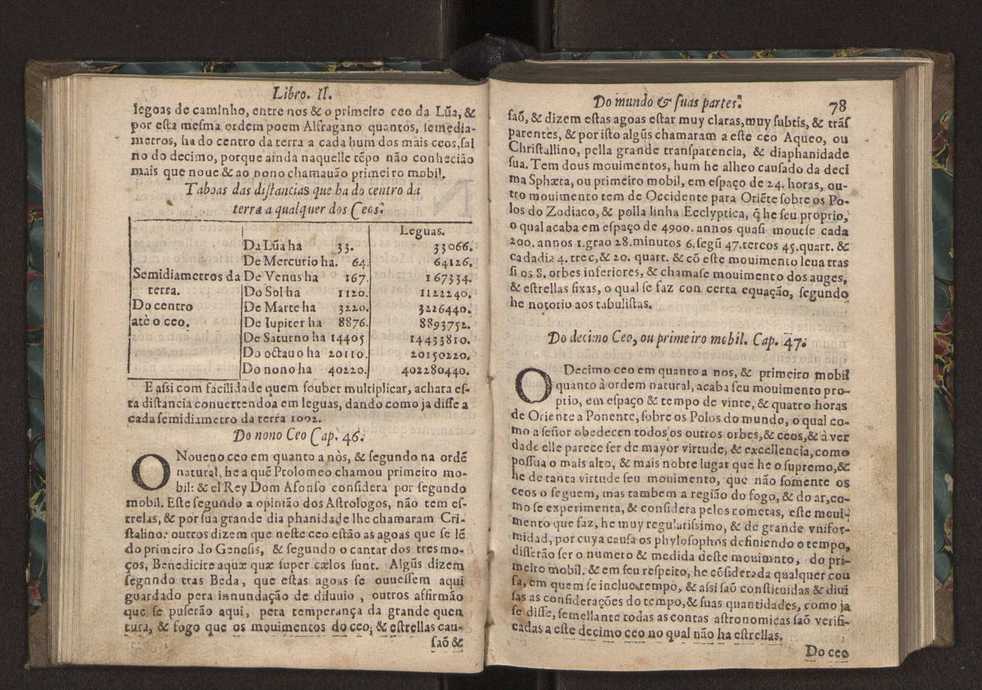 Libro. II.
legoas de caminho, entre nos & o primeiro ceo da Lũa, &
por esta mesma ordem poem Alfragano quantos, semedia-
metros, ha do centro da terra a cada hum dos mais ceos, sal
no do decimo, porque ainda naquelle tẽpo não conhecião
mais que noue & ao nono chamauão primeiro mobil.
Taboas das distancias que ha do centro da
terra a qualquer dos Ceos.
Leguas.
Da Lũa ha 33. 33066.
De Mercurio ha. 64. 64126.
Semidiametros da De Venus ha 167. 167334.
terra. Do Sol ha 1120. 1122240.
Do centro De Marte ha 3220. 3226440.
atè o ceo. De Iupiter ha 8876. 8893752.
De Saturno ha 14405 14433810.
Do octauo ha 20110. 20150220.
Do nono ha 40220. 402280440.
E assi com facilidade quem souber multiplicar, achara es-
ta distancia conuertendoa em leguas, dando como ja disse a
cada semidiametro da terra 1002.
Do nono Ceo Cap. 46.
O Noueno ceo em quanto a nòs, & segundo na ordẽ
natural, he a quẽ Ptolomeo chamou primeiro mo-
bil: & el Rey Dom Afonso considera por segundo
mobil. Este segundo a opinião dos Astrologos, não tem es-
trelas, & por sua grande diaphanidade lhe chamaram Cri-
stalino: outros dizem que neste ceo estão as agoas que se lè
do primeiro do Genesis, & segundo o cantar dos tres mo-
ços, Benedicite aquæ quæ super cælos sunt. Algũs dizem
segundo tras Beda, que estas agoas se ouuessem aqui
guardado pera innundação de diluuio, outros affirmão
que se puserão aqui, pera temperança da grande quen
tura, & fogo que os mouimentos do ceo, & estrellas cau-
saõ &
Do mundo & suas partes. 78
saõ, & dizem estas agoas estar muy claras, muy subtis, & trãs
parentes, & por isto algũs chamaram a este ceo Aqueo, ou
Christallino, pella grande transparencia, & diaphanidade
sua. Tem dous mouimentos, hum he alheo causado da deci
ma Sphæra, ou primeiro mobil, em espaço de 24. horas, ou-
tro mouimento tem de Occidente para Oriẽte sobre os Po-
los do Zodiaco, & polla linha Ecclyptica, q̃ he seu proprio,
o qual acaba em espaço de 4900. annos quasi mouese cada
200. annos 1. grao 28. minutos 6. segũ 47. tercos 45. quart. &
cada dia 4. terc, & 20. quart. & cõ este mouimento leua tras
si os 8. orbes inferiores, & chamase mouimento dos auges,
& estrellas fixas, o qual se faz con certa equação, segundo
he notorio aos tabulistas.
Do decimo Ceo, ou primeiro mobil. Cap. 47.
O Decimo ceo em quanto a nos, & primeiro mobil
quanto à ordem natural, acaba seu mouimento pro-
prio, em espaço & tempo de vinte, & quatro horas
de Oriente a Ponente, sobre os Polos do mundo, o qual co-
mo a señor obedecem todos os outros orbes, & ceos, & à ver
dade elle parece ser de mayor virtude, & excellencia, como
possua o mais alto, & mais nobre lugar que he o supremo, &
he de tanta virtude seu mouimento, que não somente os
ceos o seguem, mas tambem a região do fogo, & do ar, co-
mo se experimenta, & considera pelos cometas, este moui-
mento que faz, he muy regularissimo, & de grande vnifor-
midad, por cuya causa os phylosophos definiendo o tempo,
disserão ser o numero & medida deste mouimento, do pri-
meiro mobil. & em seu respeito, he cõsiderada qualquer cou
sa, em quem se inclue tempo, & assi saõ constituidas & diui
sas as considerações do tempo, & suas quantidades, como ja
se disse, semellante todas as contas astronomicas saõ verifi-
cadas a este decimo ceo no qual não ha estrellas.
Do ceo